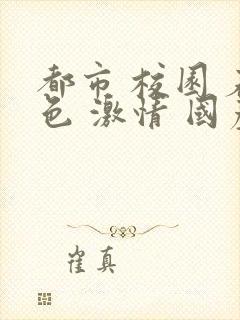 都市 校园
色 激情 國
崔真